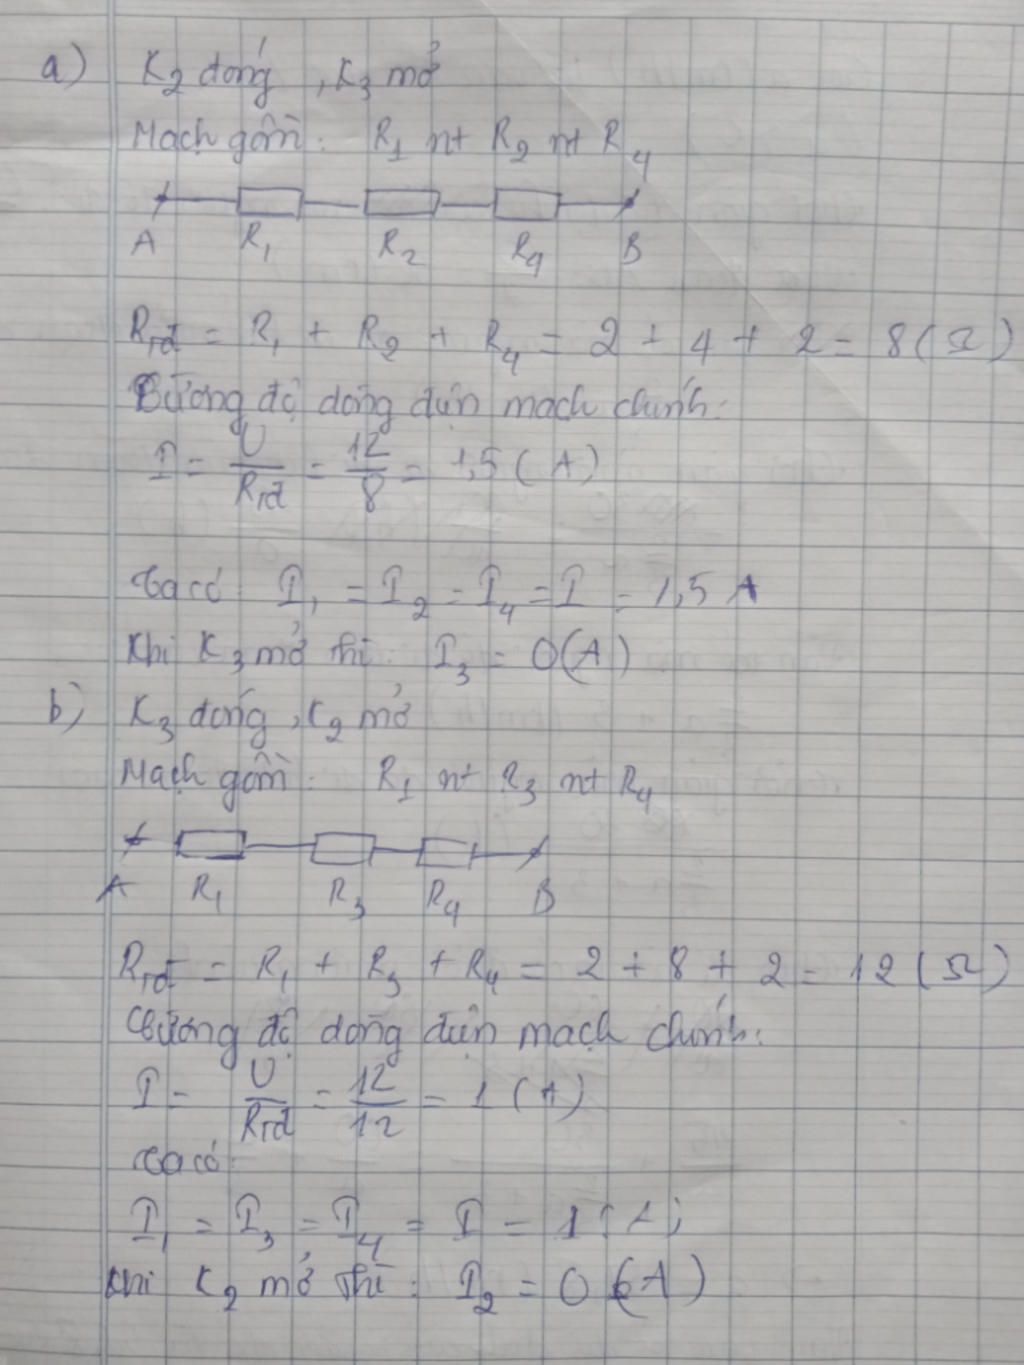 a) K₂ đóng, K₃ mở
Mạch gồm: R₁ nt R₂ nt R₄
A R₁ R₂ R₄ B
Rtđ = R₁ + R₂ + R₄ = 2 + 4 + 2 = 8 (Ω)
Cường độ dòng điện mạch chính:
I = U/Rtđ = 12/8 = 1,5 (A)
Ta có I₁ = I₂ = I₄ = I = 1,5 A
Khi K₃ mở thì: I₃ = 0 (A)
b) K₃ đóng, K₂ mở
Mạch gồm: R₁ nt R₃ nt R₄
A R₁ R₃ R₄ B
Rtđ = R₁ + R₃ + R₄ = 2 + 8 + 2 = 12 (Ω)
Cường độ dòng điện mạch chính:
I = U/Rtđ = 12/12 = 1 (A)
Ta có:
I₁ = I₃ = I₄ = I = 1 (A)
Khi K₂ mở thì: I₂ = 0 (A)